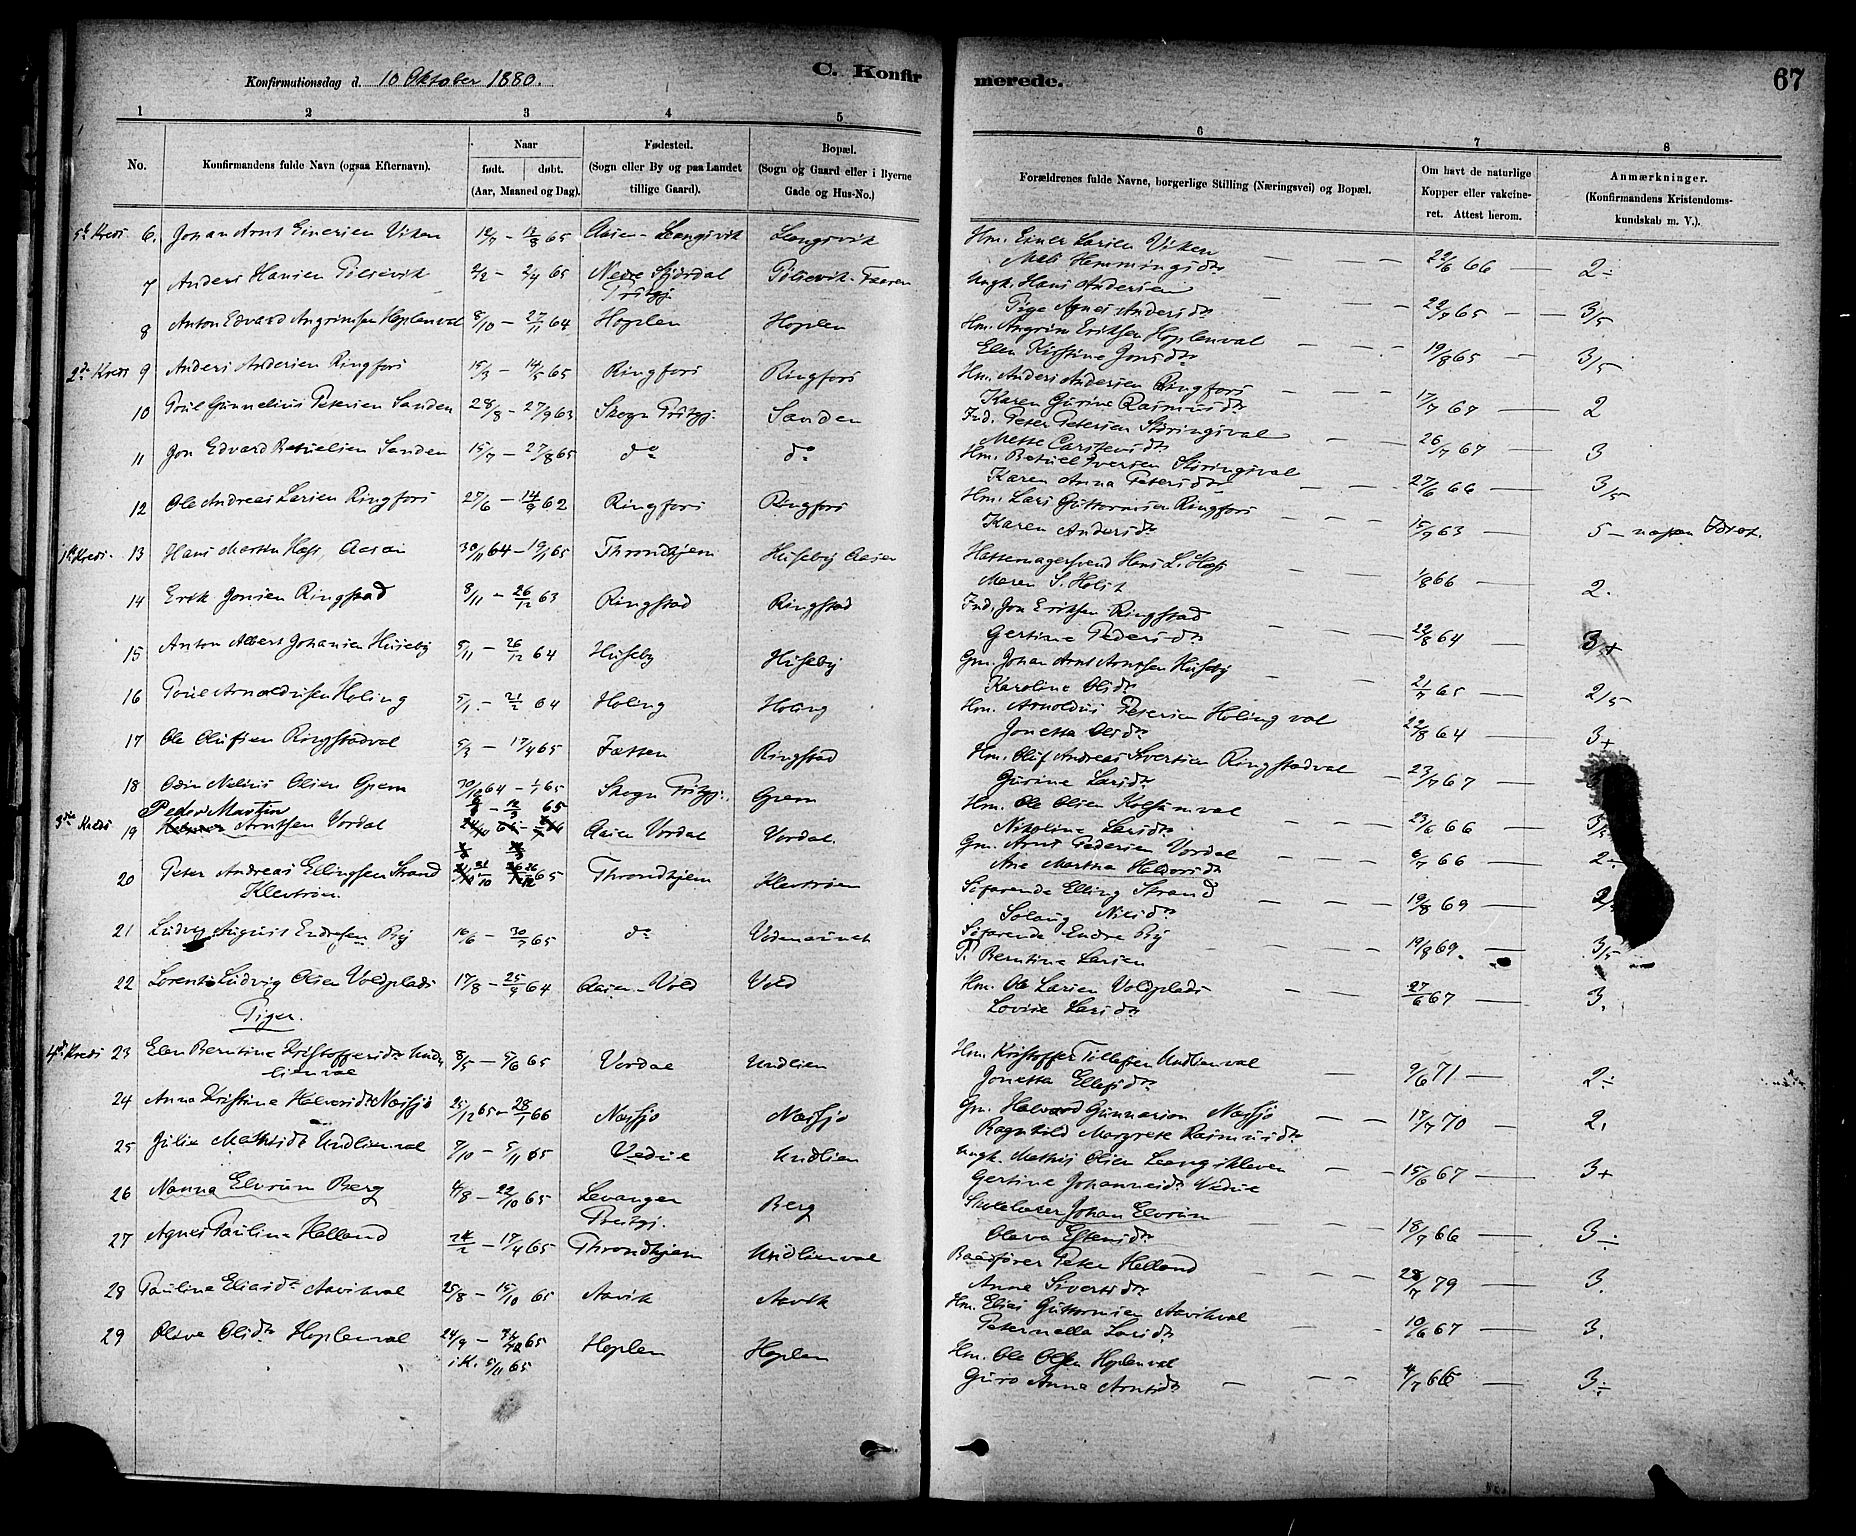 Konfirmationsdag d. 10 Oktober 1880.
C. Konfirmerede.
67
1 2 3 4 5 6 7 8
No.
Konfirmandens fulde Navn (ogsaa Efternavn).
Naar
født. døbt.
(Aar, Maaned og Dag).
Fødested.
(Sogn eller By og paa Landet
tillige Gaard).
Bopæl.
(Sogn og Gaard eller i Byerne
Gade og Hus-No.)
Forældrenes fulde Navne, borgerlige Stilling (Næringsvei) og Bopæl.
Om havt de naturlige
Kopper eller vakcine-
ret. Attest herom.
Anmærkninger.
(Konfirmandens Kristendoms-
kundskab m. V.).
5te Kreds 6. Johan Arnt Einersen Viken 12/7 – 13/8 65 Aasen – Langsvik Langsvik Hm. Einer Larsen Viken 22/6 66 2÷
Mali Hemmingsdr
7 Anders Hansen 2/2 – 2/4 65 Nedre Stjørdal Ungk. Hans Andersen 22/7 65 3/5
Præstgj. Pige Agnes Andersdr
8 Anton Edvard Angrimsen Hoplenval 8/10 – 27/11 64 Hoplen Hoplen Hm. Angrim Eriksen Hoplenval 19/8 65 3/5
Elen Kirstine Jonsdr
2den Kreds 9 Anders Andersen Ringfors 15/3 – 14/5 65 Ringfors Ringfors Hm. Anders Andersen Ringfors 17/7 67 2
Karen Gurine Rasmusdr
10 Poul Gunnelius Petersen Sanden 28/8 – 27/9 63 Skogn Prstgj. Sanden Ind. Peter Petersen Störingsval 26/7 67 3
Mette Carstensdr
11 Jon Edvard Betuelsen Sanden 15/7 – 27/8 65 do do Hm. Betuel Iversen Störingsval 27/6 66 3/5
Karen Anna Petersdr
12 Ole Andreas Larsen Ringfors 27/6 – 14/9 62 Ringfors Ringfors Hm. Lars Guttormsen Ringfors 15/9 63 5 –
Karen Andersdr
1ste Kreds. 13 Hans Martin Hass, Aasen 30/11 64 – 19/1 65 Throndhjem Huseby Aasen Hattemagersvend Hans L. Hass 1/8 66 2.
Maren S. Holst
14 Erik Jonsen Ringstad 8/11 – 26/12 63 Ringstad Ringstad Ind. Jon Eriksen Ringstad 22/8 64 3/5+
Gertine Pedersdr
15 Anton Albert Johansen Huseby 5/11 – 26/12 64 Huseby Huseby Gm. Johan Arnt Arntsen Huseby 21/7 65 2/5
Karoline Olsdr
16 Poul Arnoldusen Holing 5/1 – 21/2 64 Holing Holing Hm. Arnoldus Petersen Holingval 22/8 64 3+
Jonetta Olsdr
17 Ole Olufsen Ringstadval 5/3 – 17/4 65 Fætten Ringstad Hm. Oluf Andreas Sivertsen Ringstadval 23/7 67
Gurine Larsdr
18 Odin Nelius Olsen Grem 30/10 64 – 1/1 65 Skogn Prstgj. Grem Hm. Ole Olsen 23/6 66 3/5
Nikoline Larsdr
3die Kreds 19 Peder Martin Arntsen Vordal 12/3 65 Aasen Vordal Vordal. Gm. Arnt Pedersen Vordal 6/7 66 2÷
Ane Martha Haldorsdr
20 Peter Andreas Ellingsen Strand 65 Throndhjem Klevstrøen Söfarende Elling Strand 19/8 69
Klevströn. Solaug Nilsdr
21 Ludvig August Endresen By 16/6 – 30/7 65 do Söfarende Endre By 19/8 69. 3/5
P. Berntine Larsen
22 Lorents Ludvig Olsen Voldplads 17/8 – 25/9 64 Aasen – Vold Vold Hm. Ole Larsen Voldplads 27/6 67 3.
Lovise Larsdr
Piger.
4de Kreds 23 Elen Berntine Kristoffersdr Und- 8/5 – 5/6 65 Vordal Undlien Hm. Kristoffer Tollefsen Undlienval 9/6 71 2÷
lienval Jonetta Ellefsdr
24 Anna Kristine Halvorsdr Næssjø 25/12 65 – 28/1 66 Næssjø Næssjø Gm. Halvard Gunnarsen Næssjø 17/7 70 2.
Ragnhild Margrete Rasmusdr
25 Julie Mathisdr Undlienval 7/10 – 5/11 65 Vedul Undlien Ungk. Mathis Olsen 15/6 67 3+
Gertine Johannesdr Vedul
26 Nanna Elvrum Berg 4/8 – 22/10 65 Levanger Berg Skolelærer Johan Elvrum 18/9 66 3÷
Prestgj. Olava Estensdr
27 Agnes Pauline Helland 24/2 – 17/4 65 Throndhjem Undlienval Baadfører Peter Helland 28/7 79 3.
Anne Sivertsdr
28 Pauline Eliasdr Aavikval 25/8 – 15/10 65 Aavik Aavik Hm. Elias Guttormsen Aavikval 10/6 67 3.
Peternella Larsdr
29 Olive Olsdr Hoplenval 24/9 – 65 Hoplen Hoplen Hm. Ole Olsen Hoplenval 4/7 66 3÷
i K. 5/11 65 Guro Anna Arntsdr